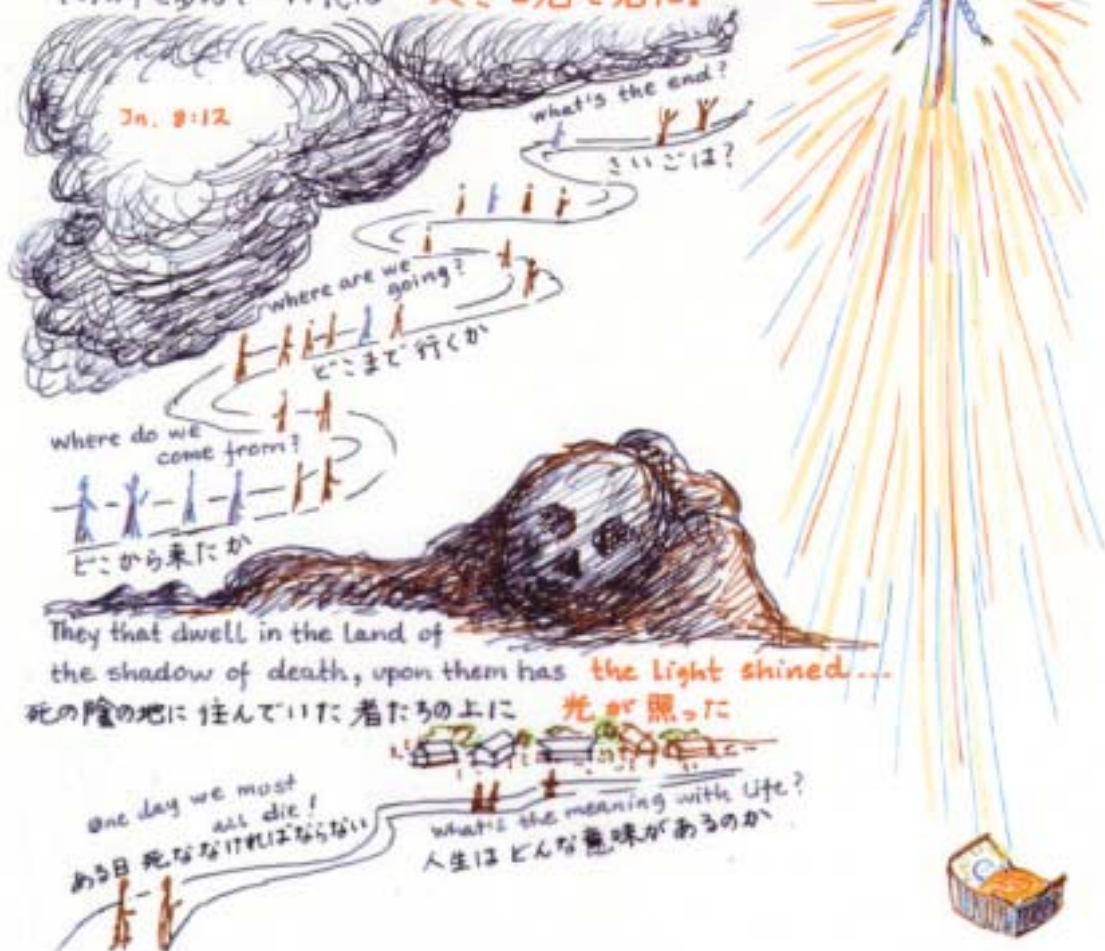 大きな光を見た。
Jn. 8:12
what's the end?
さいごは?
where are we
going?
どこまで行くか
where do we
come from?
どこから来たか
They that dwell in the land of
the shadow of death, upon them has the Light shined...
死の陰の地に住んでいた者たちの上に 光が照った
One day we most
all die!
ある日死ななければならない
what's the meaning with Life?
人生はどんな意味があるのか